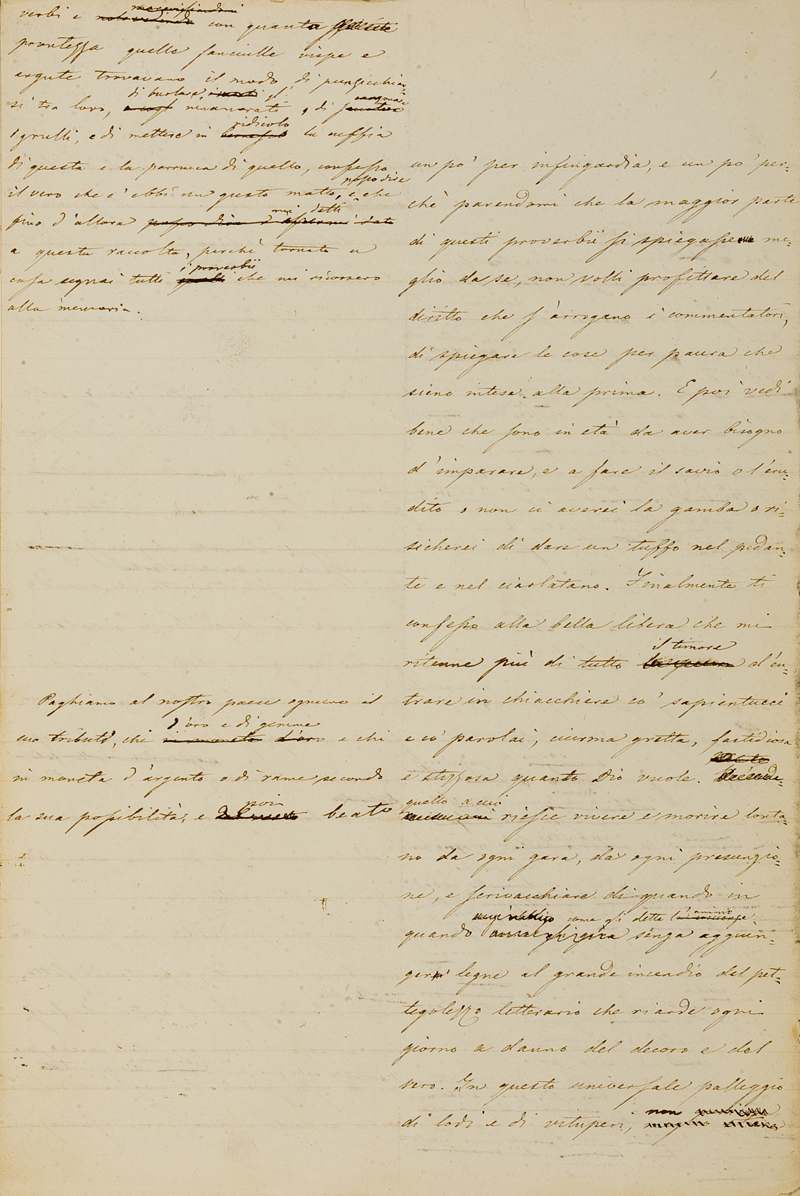 verbi e maravigliandomi con quanta
prontezza quelle fanciulle vispe e
argute trovavano il modo di punzecchiar-
si tra loro, di burlare gl' incamorati, di canzonare
i grulli, e di mettere in ridicolo la cuffia
di questa e la parrucca di quello, confesso
il vero che c'ebbi un gusto matto, e che
fino d'allora mi detti
a questa raccolta, perchè tornato a
casa segnai tutti i proverbii che mi ricorsero
alla memoria.
Paghiamo al nostro paese ognuno il
suo tributo, chi d'oro e di gemme e chi
in moneta d'argento o di rame secondo
la sua possibilità, e poi beato
un po' per infingardia, e un po' per-
chè parendomi che la maggior parte
di questi proverbii si spiegasse me-
glio da se, non volli profittare del
diritto che s'arrogano i commentatori,
di spiegare le cose per paura che
sieno intese alla prima. E poi vedi
bene che sono in età da aver bisogno
d'imparare, e a fare il savio o l'eru-
dito, o non ci averei la gamba o ri-
sicherei di dare un tuffo nel pedan-
te e nel ciarlatano. Finalmente ti
confesso alla bella libera che mi
ritenne più di tutto il timore d'en-
trare in chiacchiere co' sapientucci
e co' parolai, ciurma gretta, fastidiosa
e stizzosa quanto Dio vuole.
quello a cui riesce vivere e morire lonta-
no da ogni gara, da ogni presunzio-
ne, e scrivacchiare di quando in
quando come gli detta l'animo senza aggiun-
ger legne al grande incendio del pet-
tegolezzo letterario che riarde ogni
giorno a danno del decoro e del
vero. In questo universale palleggio
di lodi e di vituperi,